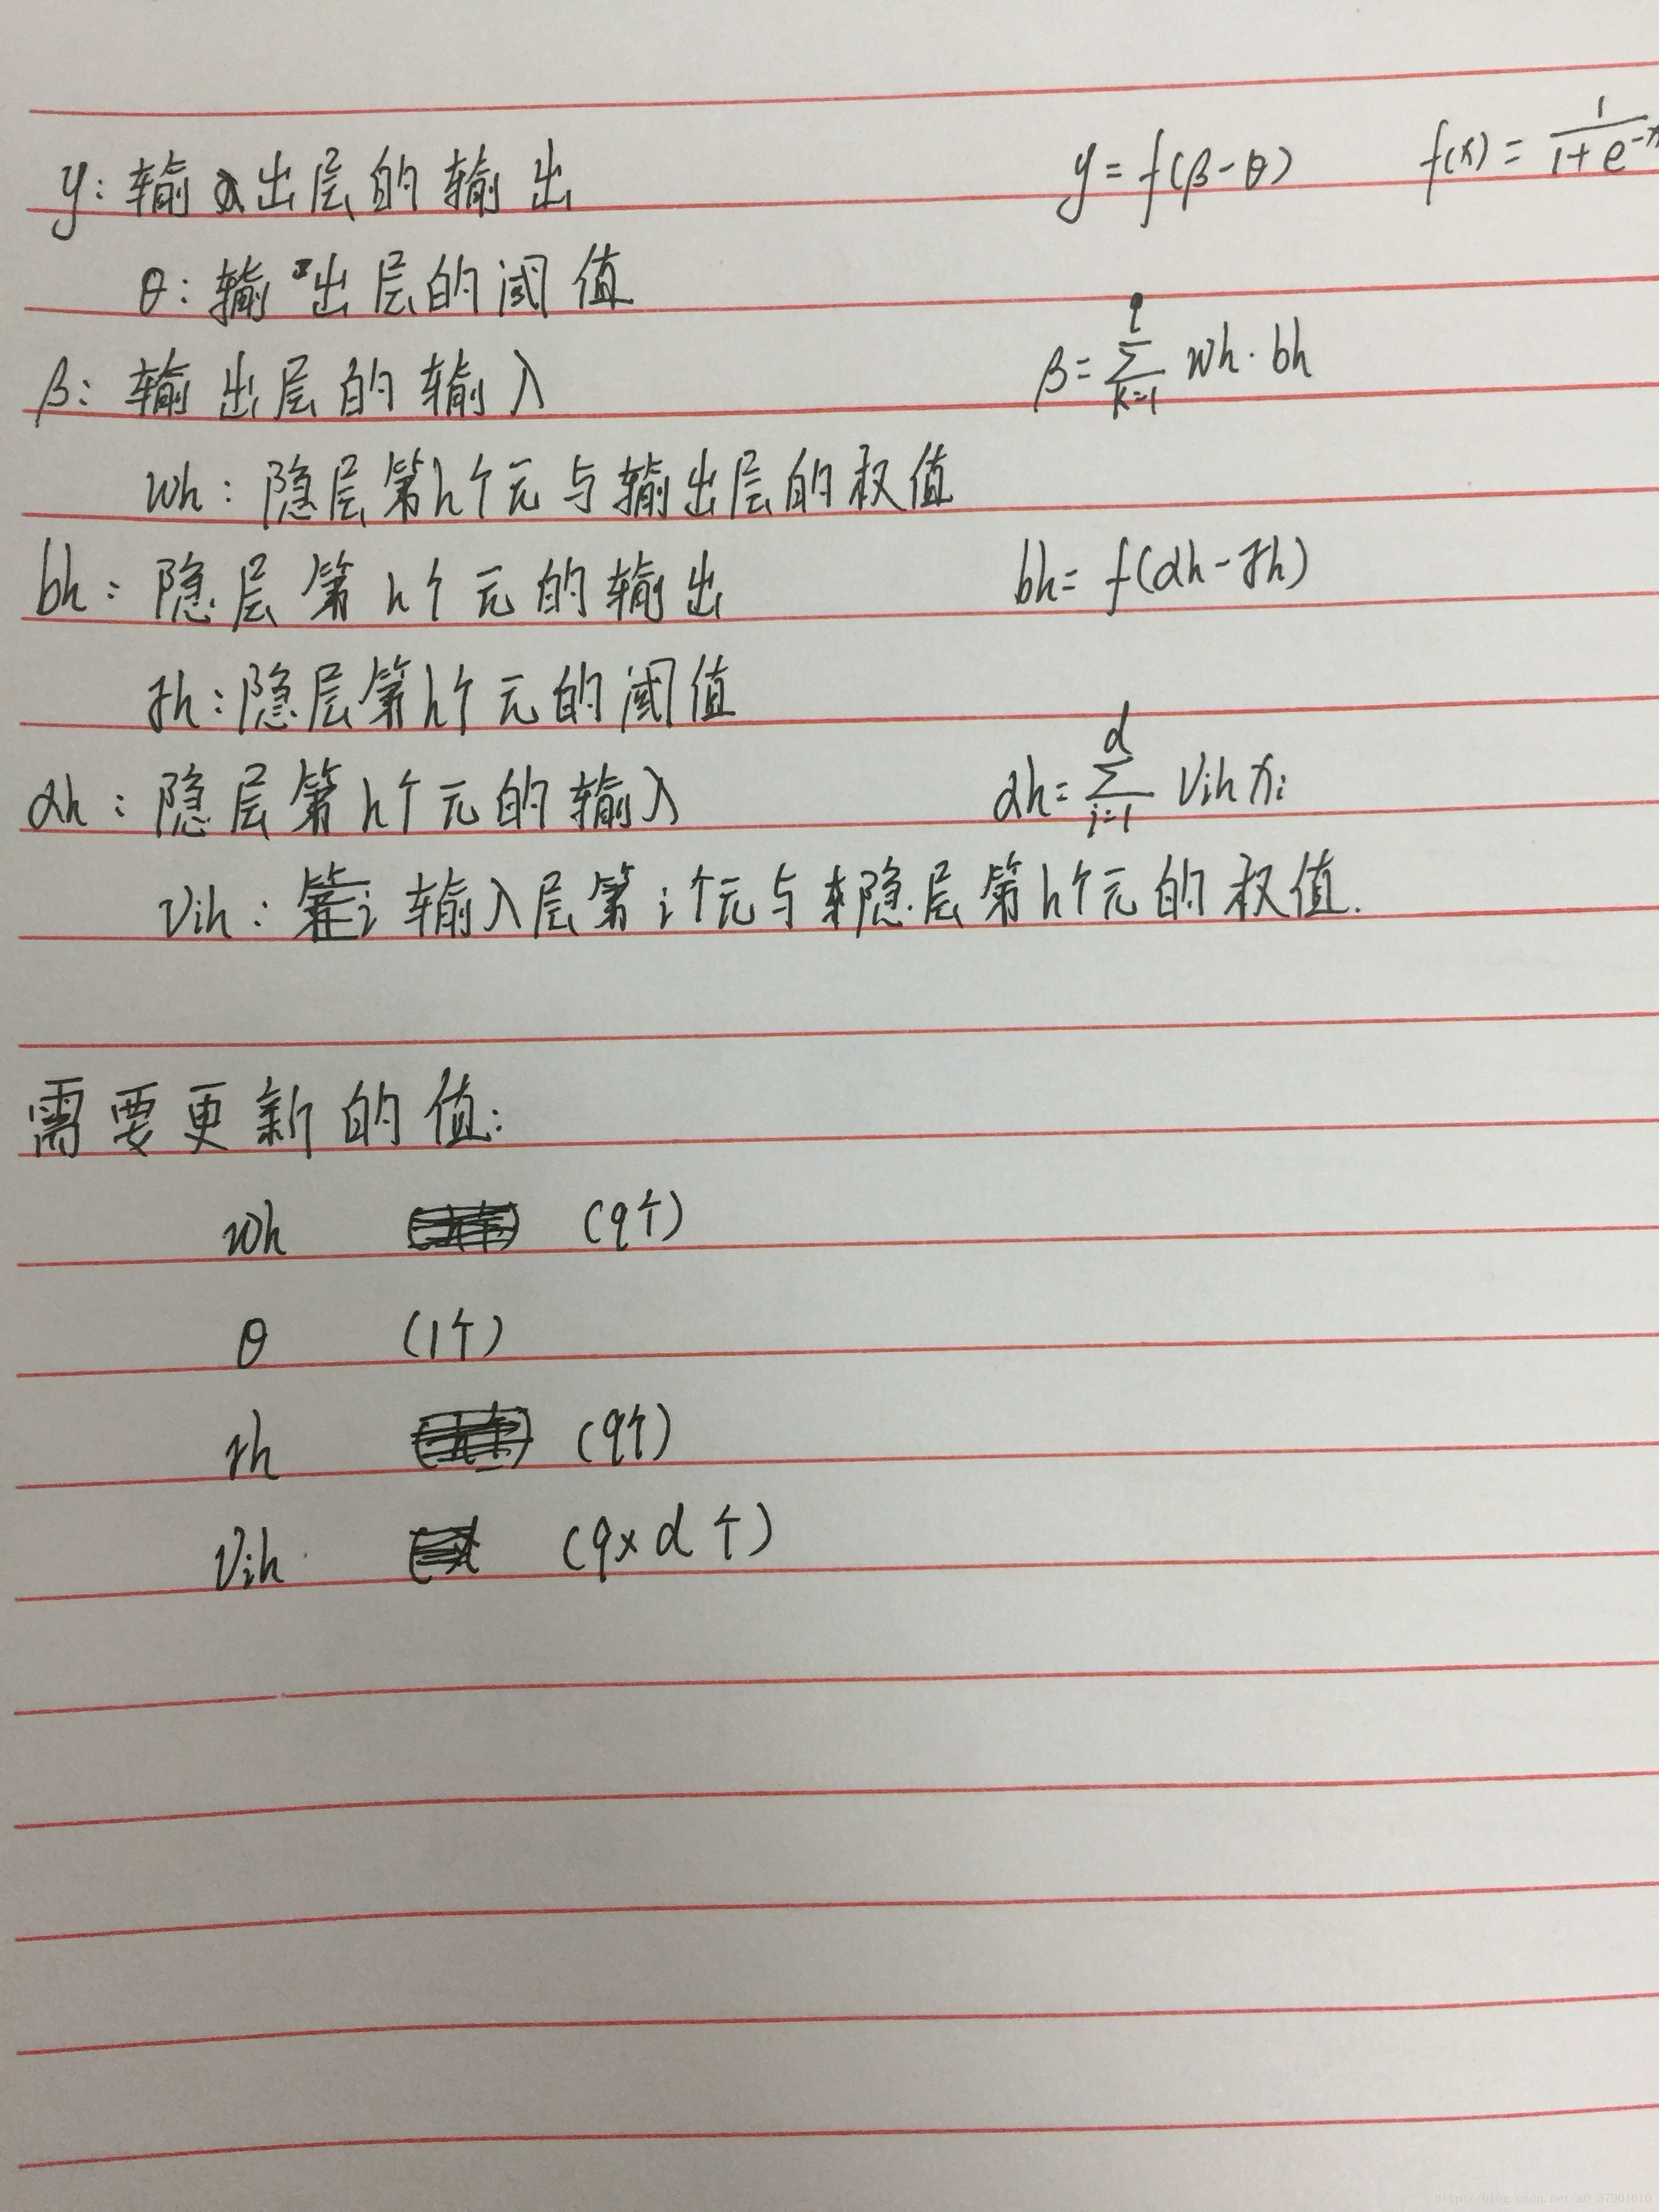 y: 输出层的输出 y = f(β-θ) f(x) = 1/(1+e^-x
θ: 输出层的阈值
β: 输出层的输入 β = ∑_{k=1}^{q} wh · bh
wh: 隐层第h个元与输出层的权值
bh: 隐层第h个元的输出 bh = f(αh - γh)
γh: 隐层第h个元的阈值
αh: 隐层第h个元的输入 αh = ∑_{i=1}^{d} Vih xi
Vih: 输入层第i个元与隐层第h个元的权值.
需要更新的值:
wh (q个)
θ (1个)
γh (q个)
Vih (q×d个)